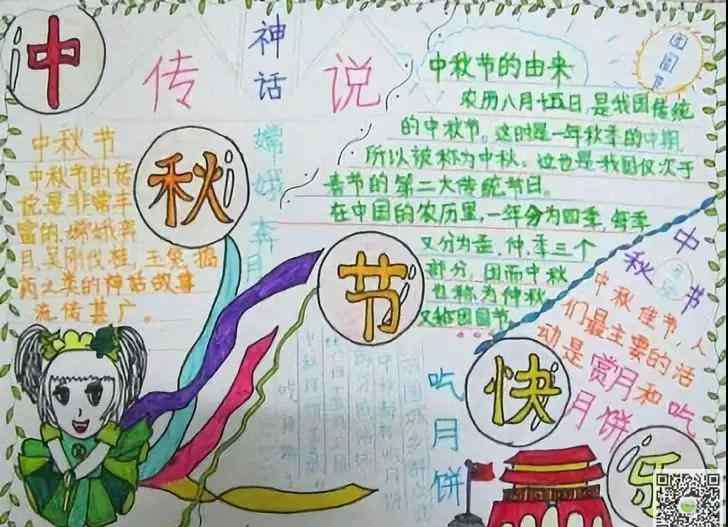 中
秋
节
快
乐
神话
传 说
嫦娥奔月
中秋节
中秋节的传
说是非常丰
富的,嫦娥奔
月,吴刚伐桂,玉兔捣
药之类的神话故事
流传甚广。
中秋节的由来
农历八月十五日,是我国传统
的中秋节。这时是一年秋季的中期,
所以被称为中秋。这也是我国仅次于
春节的第二大传统节日。
在中国的农历里,一年分为四季,每季
又分为孟、仲、季三个
部分,因而中秋
也称为仲秋
又称团圆节
中秋节
中秋佳节,人
们最主要的活
动是赏月和吃
月饼
吃月饼